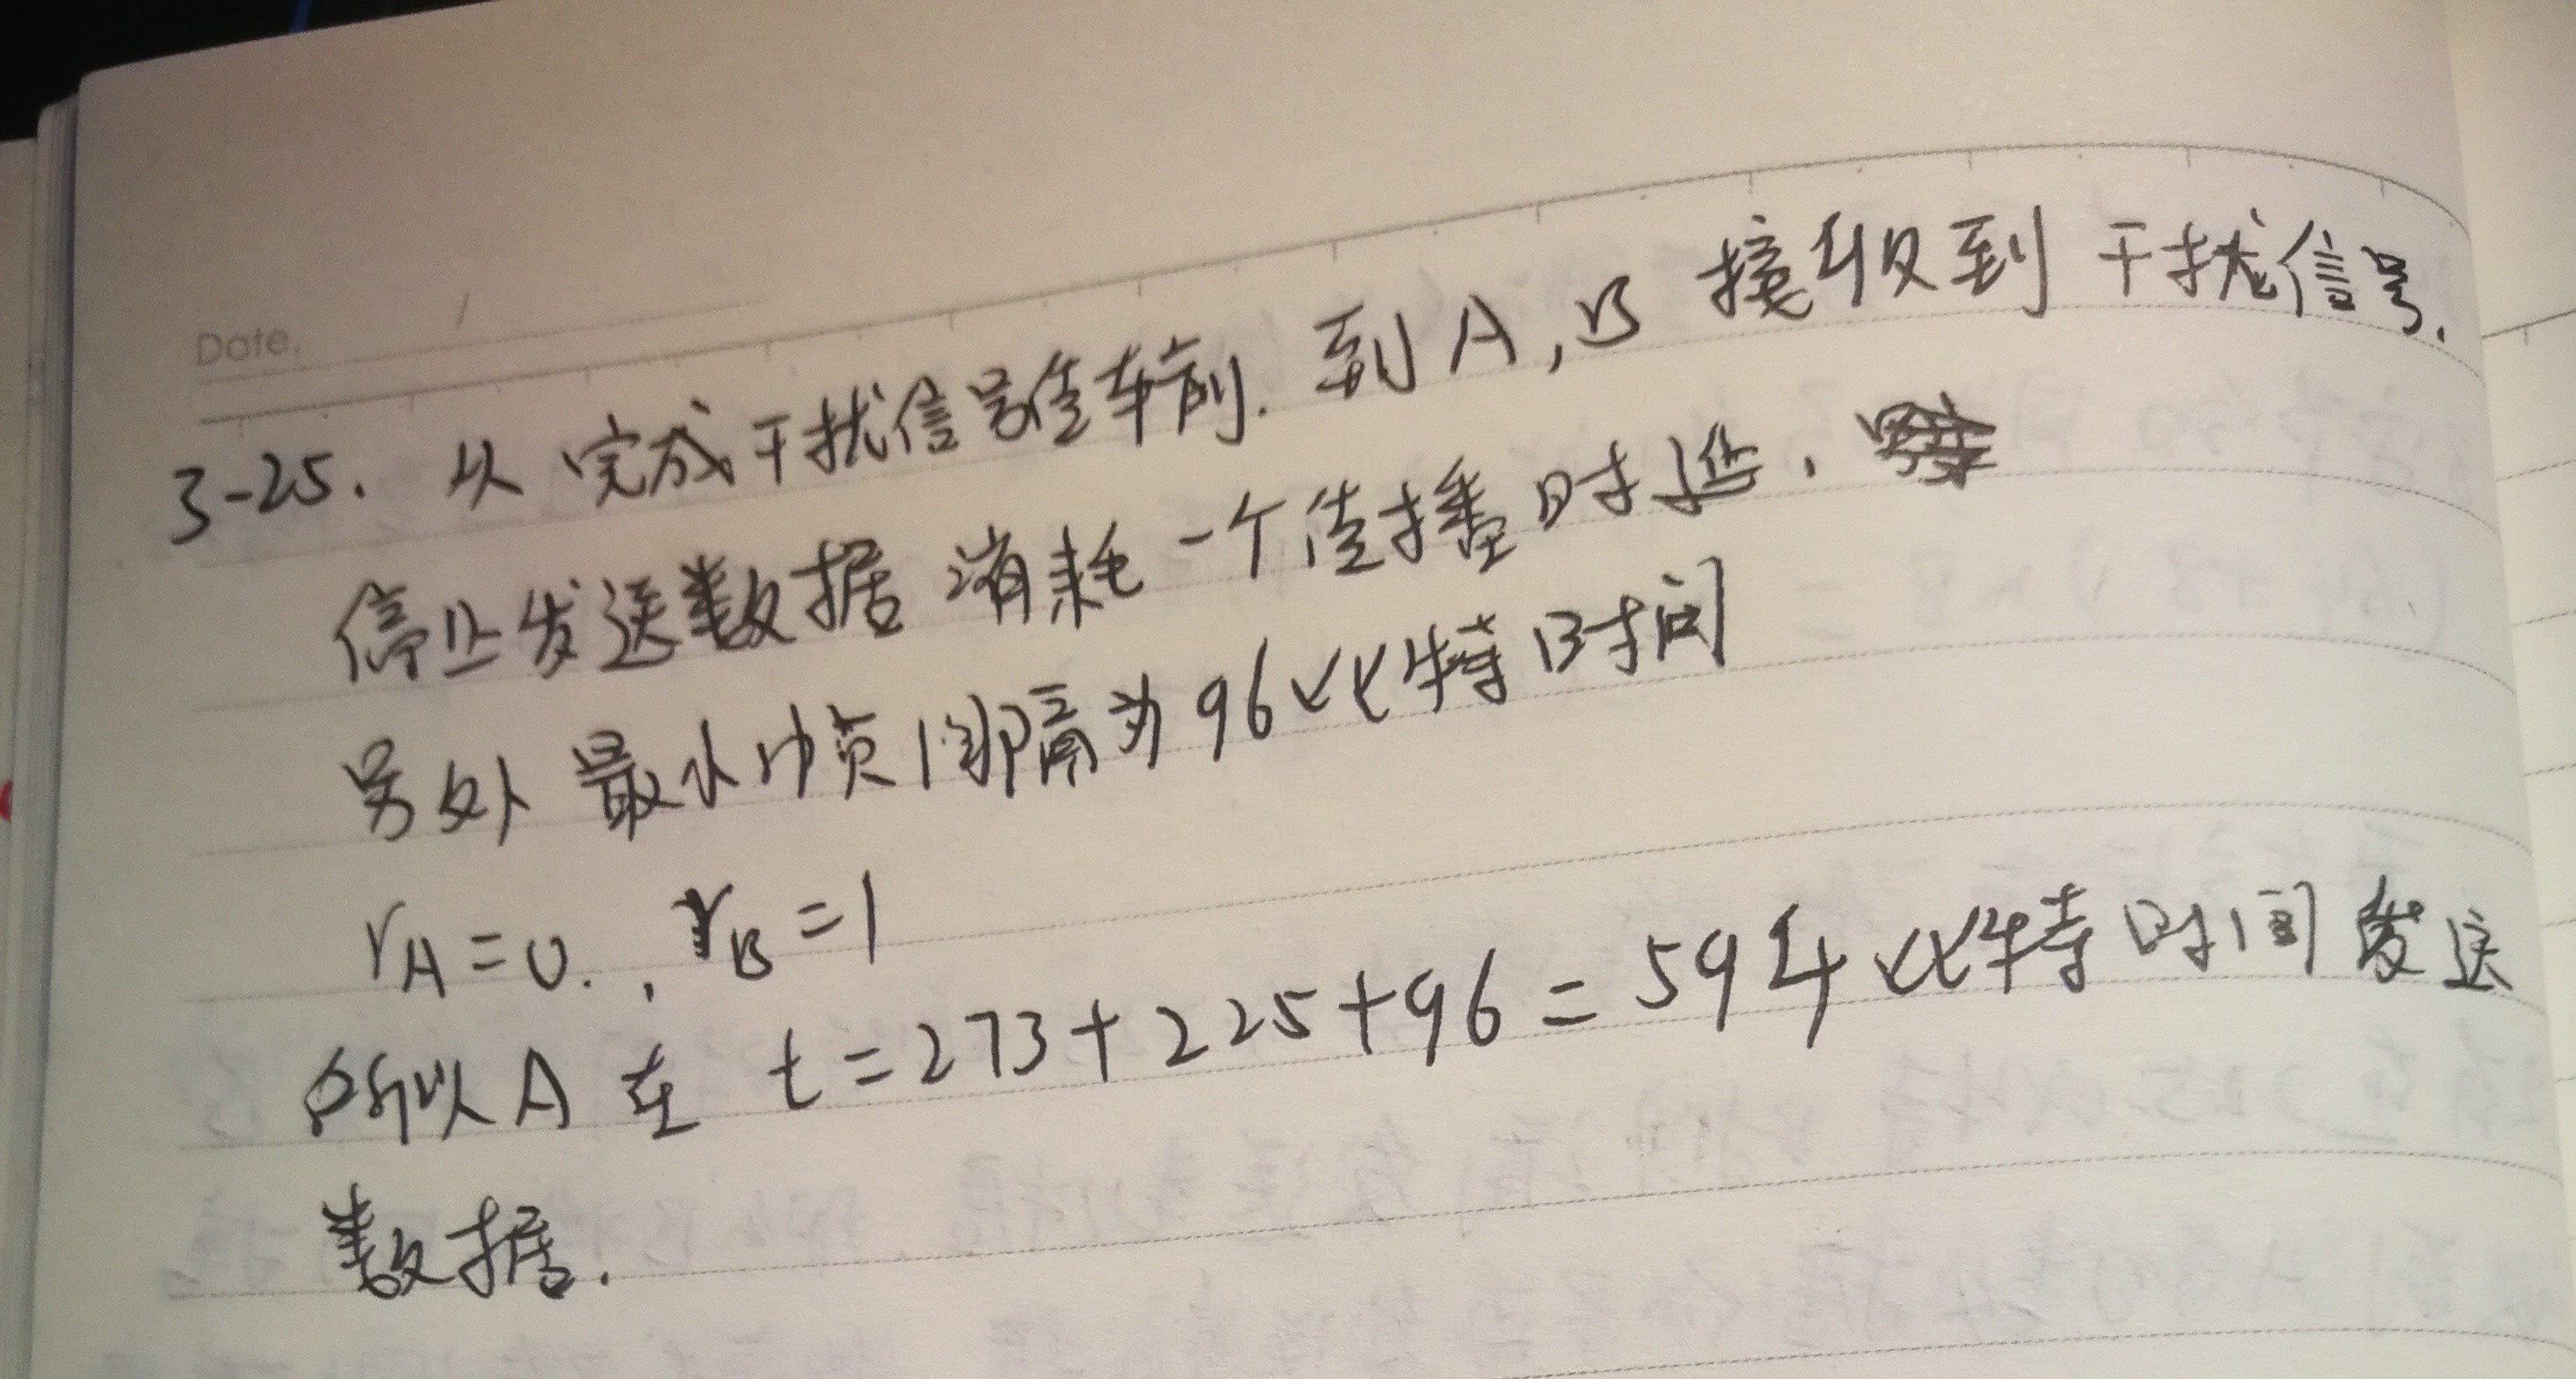 Date. /
3-25. 从完成干扰信号传输. 到A,B 接收到干扰信号.
停止发送数据消耗一个传播时延.
另外最小帧间隔为96比特时间
rA=0., rB=1
所以A在 t=273+225+96=594比特时间发送
数据.